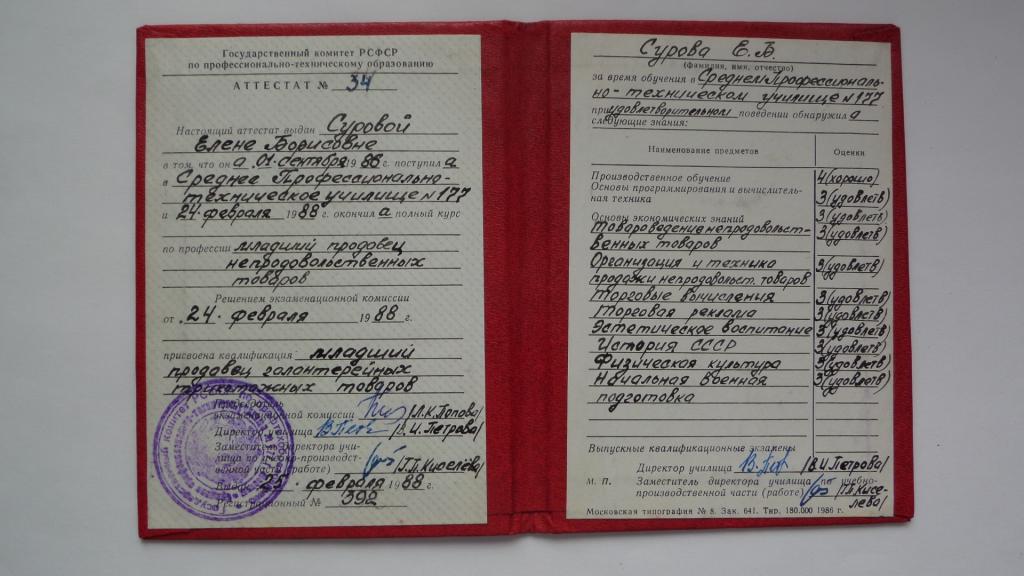 Государственный комитет РСФСР
по профессионально-техническому образованию
АТТЕСТАТ № 34
Настоящий аттестат выдан Суровой
Елене Борисовне
в том, что он а 01 сентября 1986 г. поступил а
в Среднее Профессионально-
техническое училище №177
и 24 февраля 1988 г. окончил а полный курс
по профессии младший продовец
непродовольственных
товаров
Решением экзаменационной комиссии
от 24 февраля 1988 г.
присвоена квалификация младший
продавец галантерейных
трикотажных товаров
Председатель
экзаменационной комиссии /Л.К.Попова/
Директор училища /В.И.Петрова/
Заместитель директора учи-
лища по учебно-производст-
венной части (работе) /Г.П.Киселёва/
Выдан 25 февраля 1988 г.
Регистрационный № 392
Сурова Е.Б.
(фамилия, имя, отчество)
за время обучения в Среднем Профессиональ-
но-техническом училище №177
при удовлетворительном поведении обнаружил а
следующие знания:
Наименование предметов Оценки
Производственное обучение 4(хорошо)
Основы программирования и вычислитель-
ная техника 3(удовлетв)
Основы экономических знаний 3(удовлетв)
Товароведение непродовольст-
венных товаров 3(удовлетв)
Организация и техника
продажи непродовольст. товаров 3(удовлетв)
Торговые вычисления 3(удовлетв)
Торговая реклама 3(удовлетв)
Эстетическое воспитание 3(удовлетв)
История СССР 3(удовлетв)
Физическая культура 3(удовлетв)
Начальная военная 3(удовлетв)
подготовка
Выпускные квалификационные экзамены
Директор училища /В.И.Петрова/
М. П. Заместитель директора училища по учебно-
производственной части (работе) /Г.П.Кисе-
лева/
Московская типография № 8. Зак. 641. Тир. 180.000 1986 г.